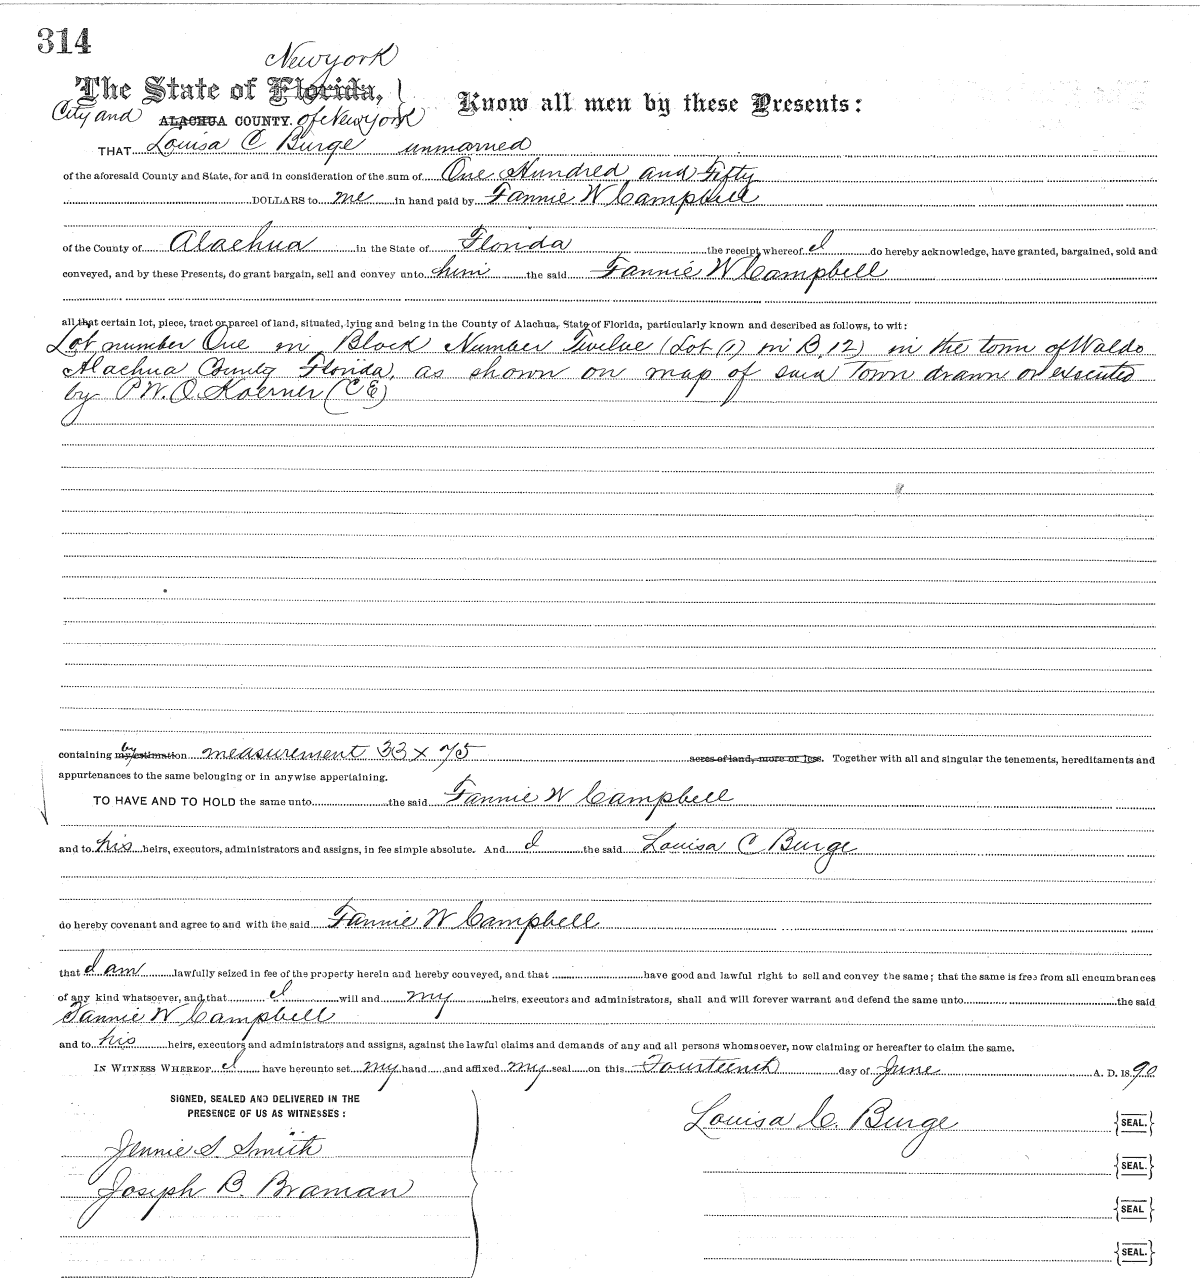 314
New york
The State of Florida,
City and ALACHUA COUNTY. of New York
Know all men by these Presents:
THAT Louisa C Burge unmarried
of the aforesaid County and State, for and in consideration of the sum of One Hundred and Fifty
DOLLARS to me in hand paid by Fannie W Campbell
of the County of Alachua in the State of Florida the receipt whereof I do hereby acknowledge, have granted, bargained, sold and
conveyed, and by these Presents, do grant bargain, sell and convey unto him the said Fannie W Campbell
all that certain lot, piece, tract or parcel of land, situated, lying and being in the County of Alachua, State of Florida, particularly known and described as follows, to wit:
Lot number One in Block Number Twelve (Lot (1) in B, 12) in the town of Waldo
Alachua County Florida, as shown on map of said Town drawn or executed
by P.W.O. Koerner (C E)
containing by my estimation measurement 33 x 75 acres of land, more or less. Together with all and singular the tenements, hereditaments and
appurtenances to the same belonging or in anywise appertaining.
TO HAVE AND TO HOLD the same unto the said Fannie W Campbell
and to his heirs, executors, administrators and assigns, in fee simple absolute. And I the said Louisa C Burge
do hereby covenant and agree to and with the said Fannie W Campbell
that I am lawfully seized in fee of the property herein and hereby conveyed, and that have good and lawful right to sell and convey the same; that the same is free from all encumbrances
of any kind whatsoever, and that I will and my heirs, executors and administrators, shall and will forever warrant and defend the same unto the said
Fannie W Campbell
and to his heirs, executors and administrators and assigns, against the lawful claims and demands of any and all persons whomsoever, now claiming or hereafter to claim the same.
IN WITNESS WHEREOF I have hereunto set my hand and affixed my seal on this Fourteenth day of June A. D. 1890
SIGNED, SEALED AND DELIVERED IN THE
PRESENCE OF US AS WITNESSES:
Louisa C. Burge {SEAL.}
Jennie S. Smith
{SEAL.}
Joseph B. Braman
{SEAL}
{SEAL.}